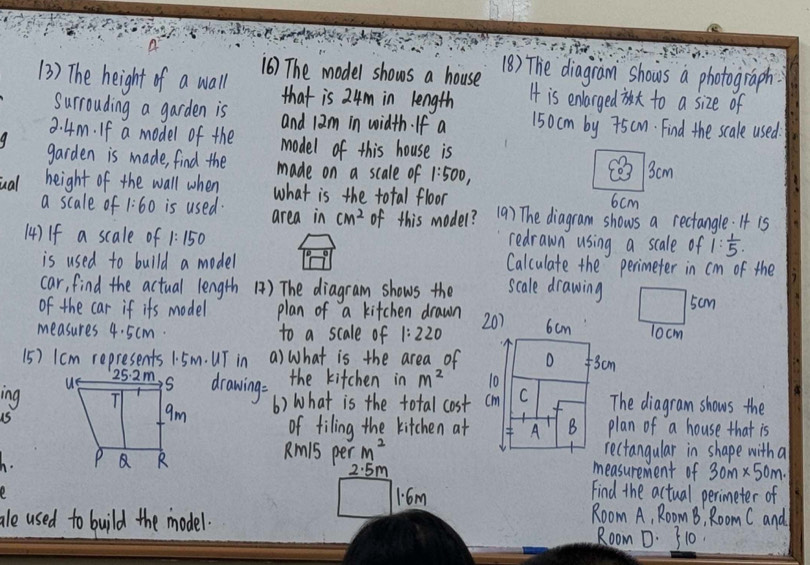 a
13) The height of a wall
Surrouding a garden is
2.4m. If a model of the
garden is made, find the
height of the wall when
a scale of 1:60 is used.
14) If a scale of 1:150
is used to build a model
car, find the actual length
of the car if its model
measures 4.5cm.
15) 1cm represents 1.5m. UT in drawing=
25.2m
U S
T
9m
P Q R
g
ual
ing
us
h.
e
ale used to build the model.
16) The model shows a house
that is 24m in length
and 12m in width. If a
model of this house is
made on a scale of 1:500,
what is the total floor
area in cm² of this model?
17) The diagram shows the
plan of a kitchen drawn
to a scale of 1:220
a) What is the area of
the kitchen in m²
b) What is the total cost
of tiling the kitchen at
RM15 per m²
2.5m
1.6m
18) The diagram shows a photograph.
It is enlarged 放大 to a size of
150cm by 75cm. Find the scale used.
3cm
6cm
19) The diagram shows a rectangle. It is
redrawn using a scale of 1:1/5.
Calculate the perimeter in cm of the
scale drawing
5cm
10cm
20)
6cm
D
3cm
10
cm
C
A
B
The diagram shows the
plan of a house that is
rectangular in shape with a
measurement of 30m x 50m.
Find the actual perimeter of
Room A, Room B, Room C and
Room D. }10.